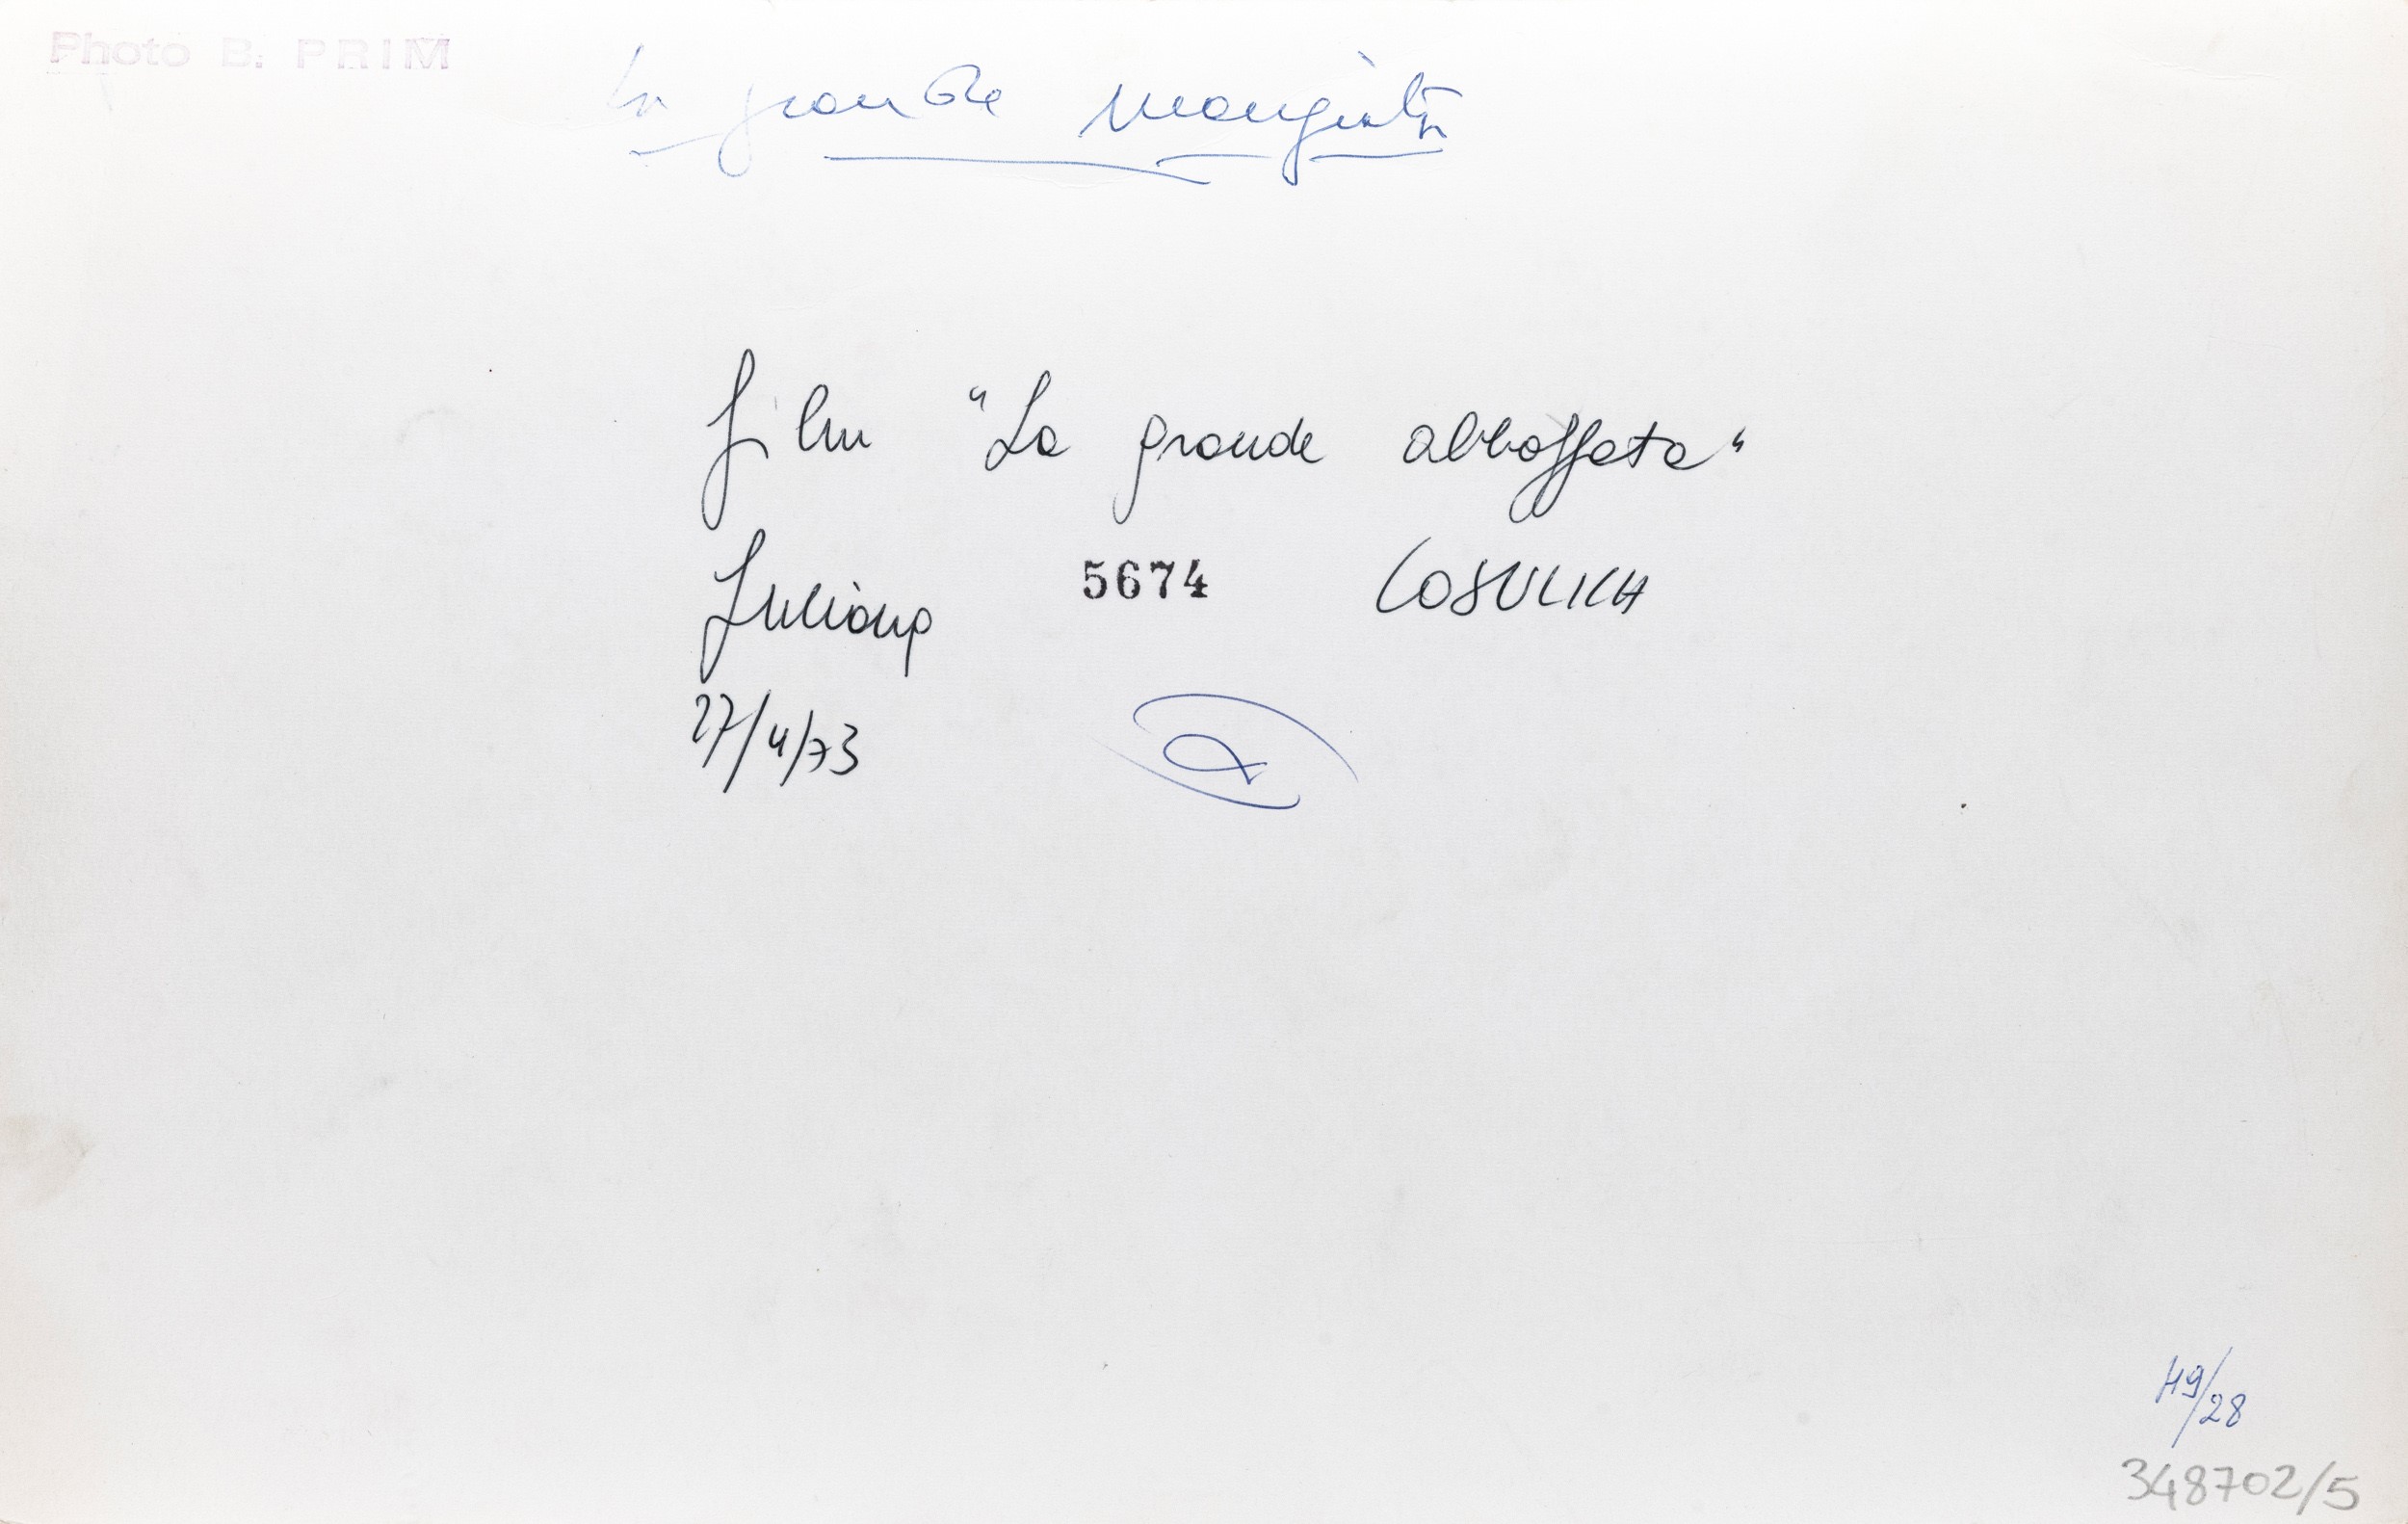 Photo B. PRIM
La grande mangiata
film "La grande abboffata"
Juliano 5674 COSULICH
27/4/73
a
H9/28
348702/5